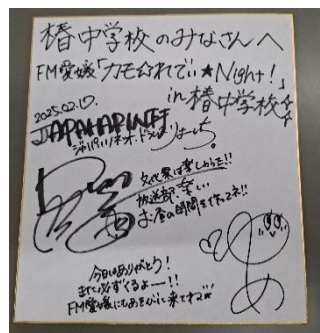 椿中学校のみなさんへ
FM愛媛「カモされでぃ★Night!」
in 椿中学校☆
2025.02.17.
JAPAHARINET
ジャパハリネット・ドラム
文化祭は楽しかった!!
放送部、楽しい
お昼の時間を作ってネ!!
ゆめ
今日はありがとう!
また必ずくるよー!!
FM愛媛にもあそびに来てね